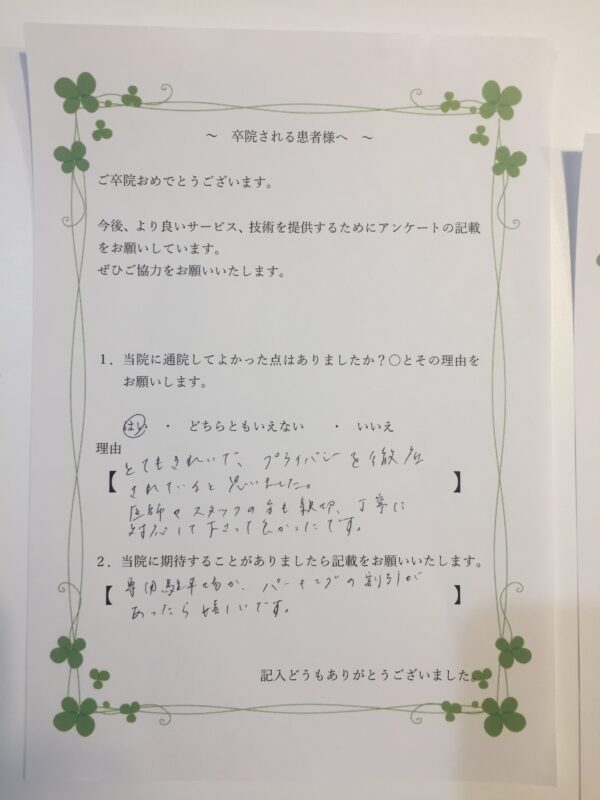 ～ 卒院される患者様へ ～
ご卒院おめでとうございます。
今後、より良いサービス、技術を提供するためにアンケートの記載
をお願いしています。
ぜひご協力をお願いいたします。
１．当院に通院してよかった点はありましたか？○とその理由を
お願いします。
はい ・ どちらともいえない ・ いいえ
理由
【とてもきれいで、プライバシーを徹底
されていると思いました。
医師やスタッフの方も親切、丁寧に
対応して下さって良かったです。】
２．当院に期待することがありましたら記載をお願いいたします。
【専用駐車場か、パーキングの割引が
あったら嬉しいです。】
記入どうもありがとうございました。